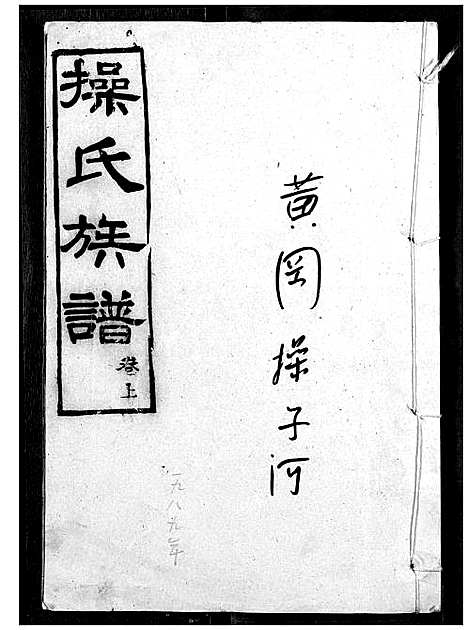 操氏族譜
卷上
黄岡操子河
一九八九年